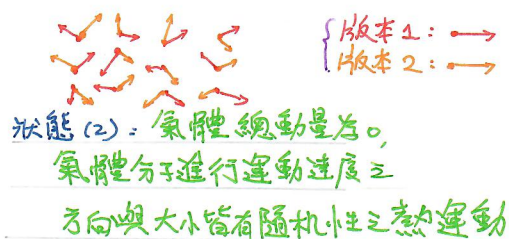 版本1：
版本2：
狀態(2)：氣體總動量為0,
氣體分子進行運動速度之
方向與大小皆有隨机性之熱運動